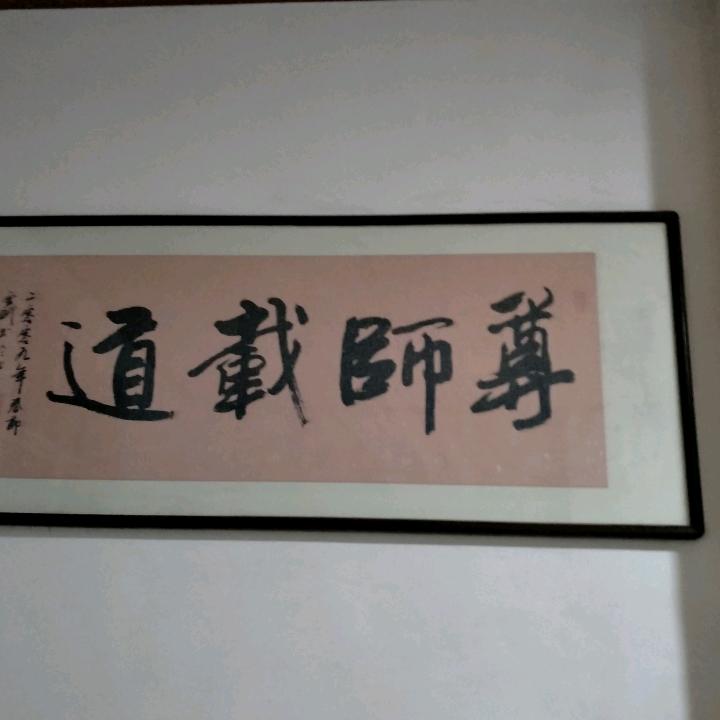 尊師載道
二零零九年春節